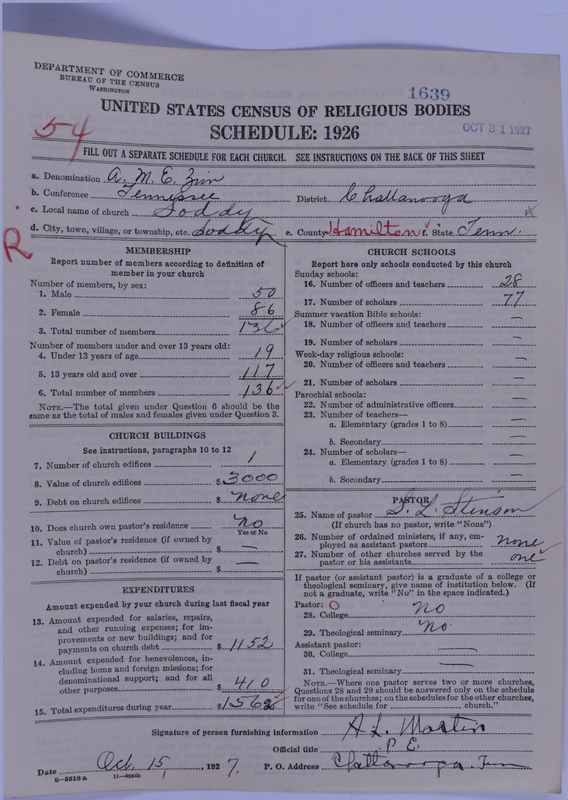 DEPARTMENT OF COMMERCE
BUREAU OF THE CENSUS
WASHINGTON
1639
UNITED STATES CENSUS OF RELIGIOUS BODIES
SCHEDULE: 1926
OCT 31 1927
54
FILL OUT A SEPARATE SCHEDULE FOR EACH CHURCH. SEE INSTRUCTIONS ON THE BACK OF THIS SHEET
a. Denomination A. M. E. Zion
b. Conference Tennessee District Chattanooga
c. Local name of church Soddy
d. City, town, village, or township, etc. Soddy e. County Hamilton f. State Tenn.
R
MEMBERSHIP
Report number of members according to definition of
member in your church
Number of members, by sex:
1. Male 50
2. Female 86
3. Total number of members 136
Number of members under and over 13 years old:
4. Under 13 years of age 19
5. 13 years old and over 117
6. Total number of members 136
NOTE.—The total given under Question 6 should be the
same as the total of males and females given under Question 3.
CHURCH BUILDINGS
See instructions, paragraphs 10 to 12
7. Number of church edifices 1
8. Value of church edifices $ 3000
9. Debt on church edifices $ None
10. Does church own pastor's residence No
Yes or No
11. Value of pastor's residence (if owned by
church) $ —
12. Debt on pastor's residence (if owned by
church) $ —
EXPENDITURES
Amount expended by your church during last fiscal year
13. Amount expended for salaries, repairs,
and other running expenses; for im-
provements or new buildings; and for
payments on church debt $ 1152
14. Amount expended for benevolences, in-
cluding home and foreign missions; for
denominational support; and for all
other purposes $ 410
15. Total expenditures during year $ 1562
CHURCH SCHOOLS
Report here only schools conducted by this church
Sunday schools:
16. Number of officers and teachers 28
17. Number of scholars 77
Summer vacation Bible schools:
18. Number of officers and teachers —
19. Number of scholars —
Week-day religious schools:
20. Number of officers and teachers —
21. Number of scholars —
Parochial schools:
22. Number of administrative officers —
23. Number of teachers—
a. Elementary (grades 1 to 8) —
b. Secondary —
24. Number of scholars—
a. Elementary (grades 1 to 8) —
b. Secondary —
PASTOR
25. Name of pastor S. L. Stinson
(If church has no pastor, write "None")
26. Number of ordained ministers, if any, em-
ployed as assistant pastors none
27. Number of other churches served by the
pastor or his assistants one
If pastor (or assistant pastor) is a graduate of a college or
theological seminary, give name of institution below. (If
not a graduate, write "No" in the space indicated.)
Pastor: O
28. College No
29. Theological seminary No
Assistant pastor:
30. College —
31. Theological seminary —
NOTE.—Where one pastor serves two or more churches,
Questions 28 and 29 should be answered only on the schedule
for one of the churches; on the schedules for the other churches,
write "See schedule for church."
Signature of person furnishing information A L. Martin
Official title P. E.
Date Oct. 15, 1927. P. O. Address Chattanooga. Tenn